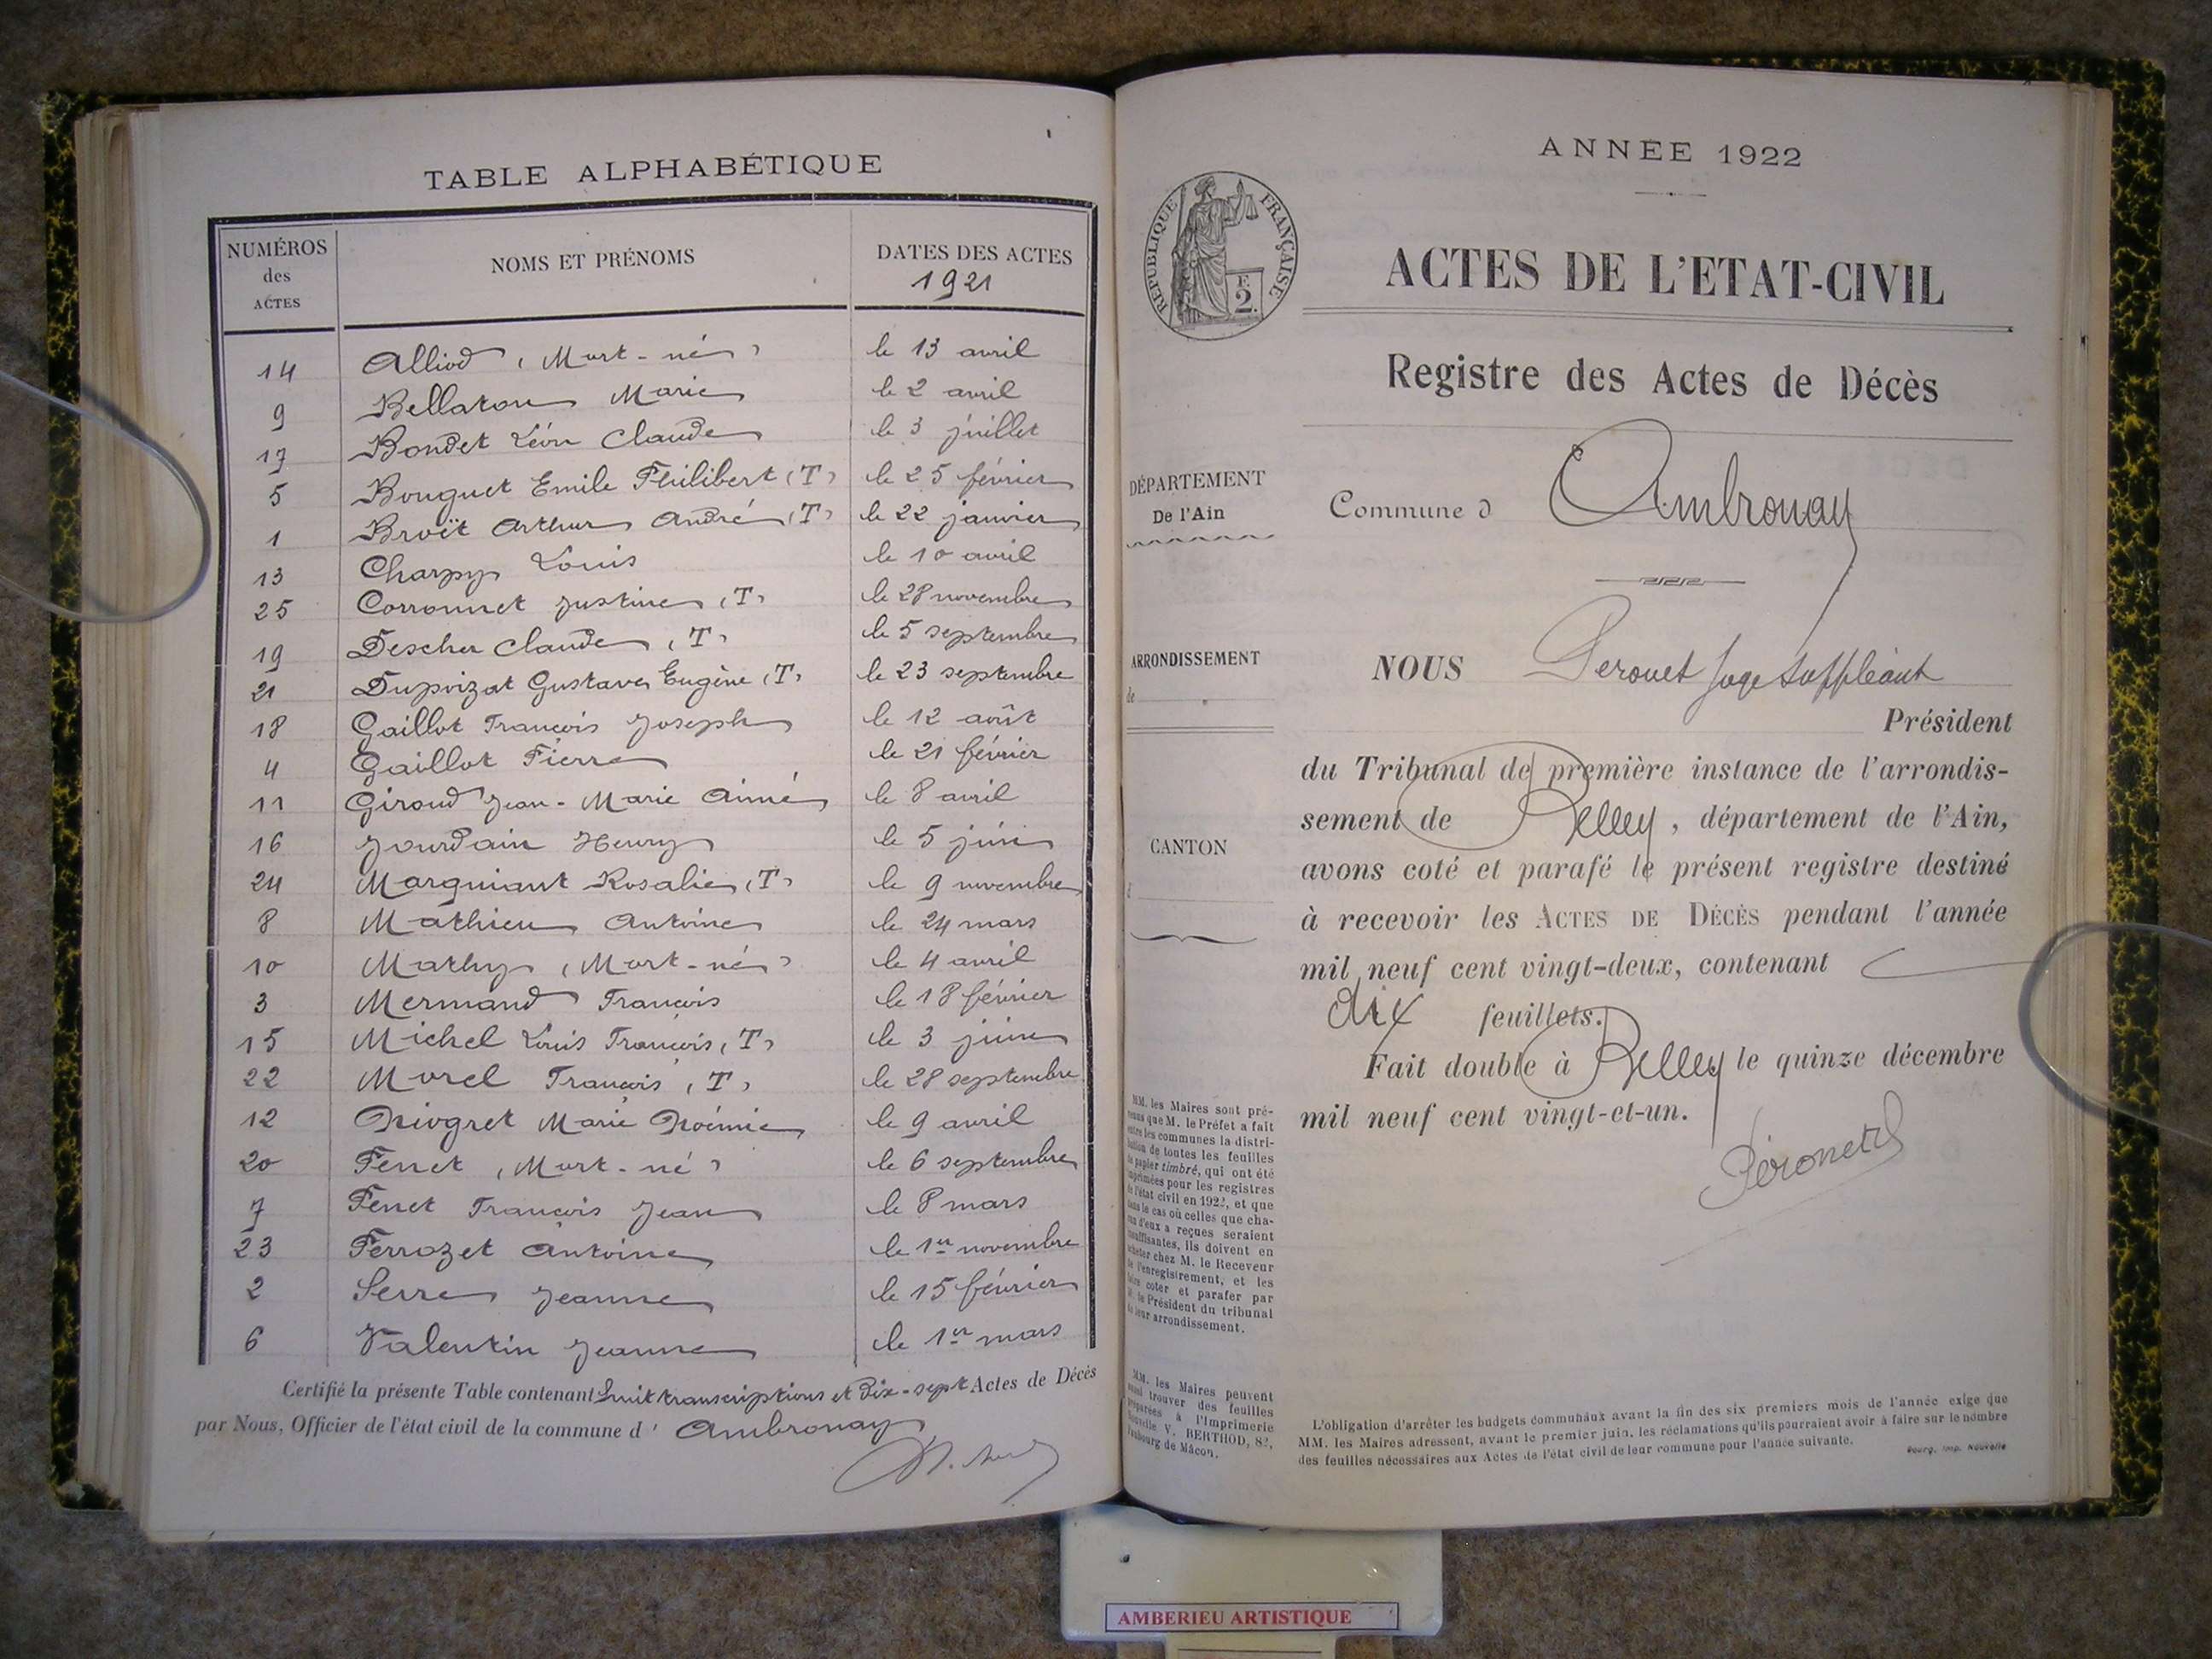 TABLE ALPHABÉTIQUE
NUMÉROS des ACTES
NOMS ET PRÉNOMS
DATES DES ACTES
1921
14 Alliod (Mort-né) le 13 avril
9 Bellaton Marie le 2 avril
17 Bondet Léon Claude le 3 juillet
5 Bouguet Emile Philibert (T) le 25 février
1 Broët Arthur André (T) le 22 janvier
13 Charpy Louis le 10 avril
25 Corronnet Justine (T) le 28 novembre
19 Descher Claude (T) le 5 septembre
21 Dupoizat Gustave Eugène (T) le 23 septembre
18 Gaillot François Joseph le 12 août
4 Gaillot Pierre le 21 février
11 Giroud Jean-Marie Aimé le 8 avril
16 Jourdain Henry le 5 juin
24 Marguiant Rosalie (T) le 9 novembre
8 Mathieu Antoine le 24 mars
10 Mathy (Mort-né) le 4 avril
3 Mermand François le 18 février
15 Michel Louis François (T) le 3 juin
22 Morel François (T) le 28 septembre
12 Niogret Marie Noémie le 9 avril
20 Penet (Mort-né) le 6 septembre
7 Penet François Jean le 8 mars
23 Perrozet Antoine le 1er novembre
2 Serre Jeanne le 15 février
6 Valentin Jeanne le 1er mars
Certifié la présente Table contenant huit transcriptions et dix-sept Actes de Décès
par Nous, Officier de l'état civil de la commune d' Ambronay
ANNÉE 1922
RÉPUBLIQUE FRANÇAISE
F.
2.
ACTES DE L'ETAT-CIVIL
Registre des Actes de Décès
DÉPARTEMENT
De l'Ain
Commune d Ambronay
ARRONDISSEMENT
de
NOUS Peronet Juge Suppléant
Président
du Tribunal de première instance de l'arrondis-
sement de Belley, département de l'Ain,
CANTON
d
avons coté et parafé le présent registre destiné
à recevoir les ACTES DE DÉCÈS pendant l'année
mil neuf cent vingt-deux, contenant
dix feuillets.
Fait double à Belley le quinze décembre
mil neuf cent vingt-et-un.
Péronet
MM. les Maires sont pré-
venus que M. le Préfet a fait
entre les communes la distri-
bution de toutes les feuilles
de papier timbré, qui ont été
imprimées pour les registres
de l'état civil en 1922, et que
dans le cas où celles que cha-
cun d'eux a reçues seraient
insuffisantes, ils doivent en
acheter chez M. le Receveur
de l'enregistrement, et les
faire coter et parafer par
M. le Président du tribunal
de leur arrondissement.
MM. les Maires peuvent
aussi trouver des feuilles
préparées à l'Imprimerie
Nouvelle V. BERTHOD, 82,
Faubourg de Mâcon.
L'obligation d'arrêter les budgets communaux avant la fin des six premiers mois de l'année exige que
MM. les Maires adressent, avant le premier juin, les réclamations qu'ils pourraient avoir à faire sur le nombre
des feuilles nécessaires aux Actes de l'état civil de leur commune pour l'année suivante.
Bourg, Imp. Nouvelle
AMBERIEU ARTISTIQUE